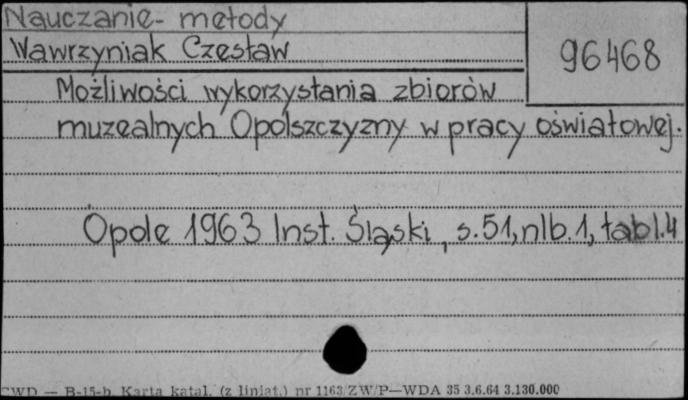 Nauczanie- metody
Wawrzyniak Czesław
96468
Możliwości wykorzystania zbiorów
muzealnych Opolszczyzny w pracy oświatowej.
Opole 1963 Inst. Śląski, s.51, nlb.1, tabl.4
CWD — B-15-b Karta katal. (z liniat.) nr 1163/ZW/P—WDA 35 3.6.64 3.130.000